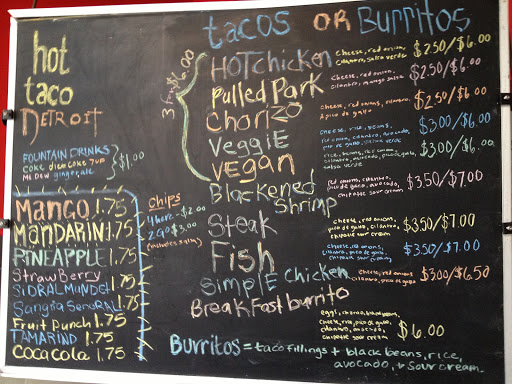 hot
taco
DETROIT
FOUNTAIN DRINKS
COKE DIET COKE 7UP
Mt. DEW gingerale
$1.00
MANGO 1.75
MANDARIN 1.75
PINEAPPLE 1.75
STRAWBERRY
SIDRAL MUNDET 1.75
Sangria SENORIAL 1.75
Fruit Punch 1.75
TAMARIND 1.75
COCA COLA 1.75
Chips
4 here - $2.00
2 GO $3.00
(includes salsa)
tacos OR Burritos
3 for $6.00
HOT Chicken cheese, red onion, cilantro, salsa verde $2.50/$6.00
Pulled Pork cheese, red onion, cilantro, mango salsa $2.50/$6.00
Chorizo cheese, red onions, cilantro & pico de gallo $2.50/$6.00
VeggiE cheese, rice, beans, red onion, cilantro, avocado, pico de gallo, salsa verde $3.00/$6.00
VEGAN rice, beans, red onion, cilantro, avocado, pico de gallo, salsa verde $3.00/$6.00
Blackened Shrimp red onions, cilantro, pico de gallo, avocado, chipotle sour cream $3.50/$7.00
Steak cheese, red onions, pico de gallo, cilantro, chipotle sour cream $3.50/$7.00
Fish cheese, red onions, cilantro, pico de gallo, chipotle sour cream $3.50/$7.00
SimplE Chicken cheese, red onions, cilantro, chipotle sour cream $3.00/$6.50
BreakFast burrito eggs, cheese, rice, pico de gallo, cilantro, avocado, chipotle sour cream $6.00
Burritos = taco fillings + black beans, rice,
avocado, + sour cream.